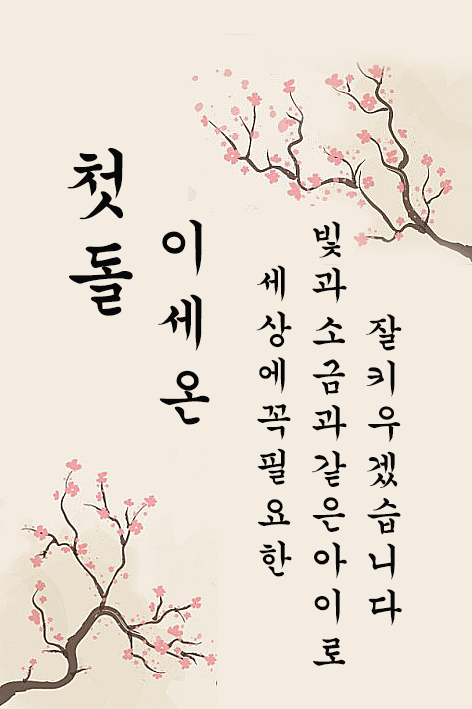 첫돌
이세온
세상에꼭필요한
빛과소금과같은아이로
잘키우겠습니다